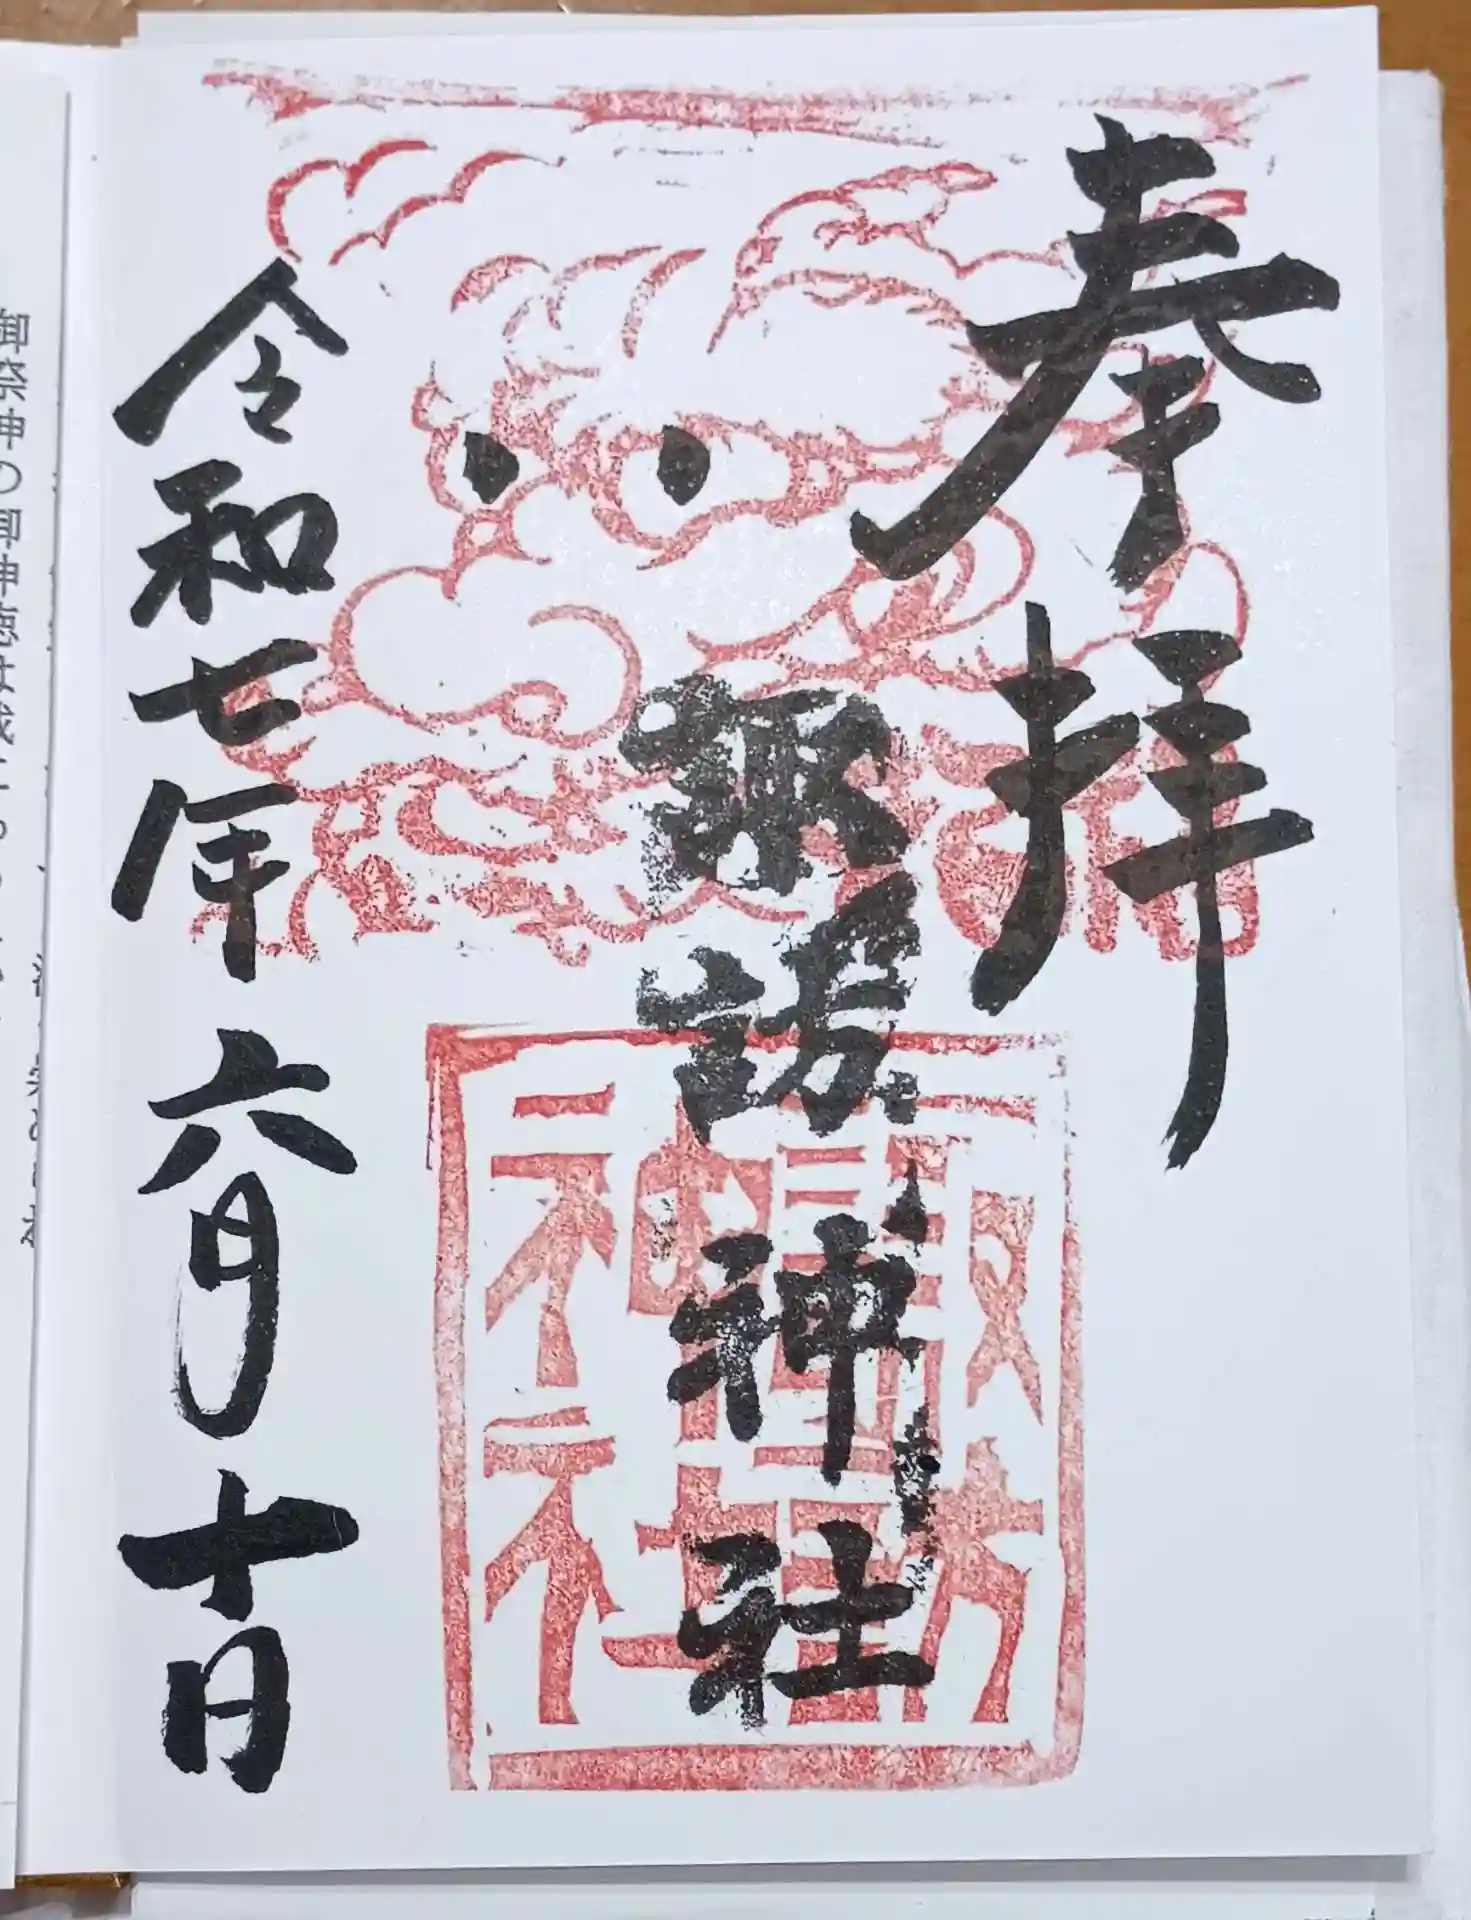 奉拝
諏訪神社
諏訪
神社
令和七年六月十日
御祭神の御神徳は